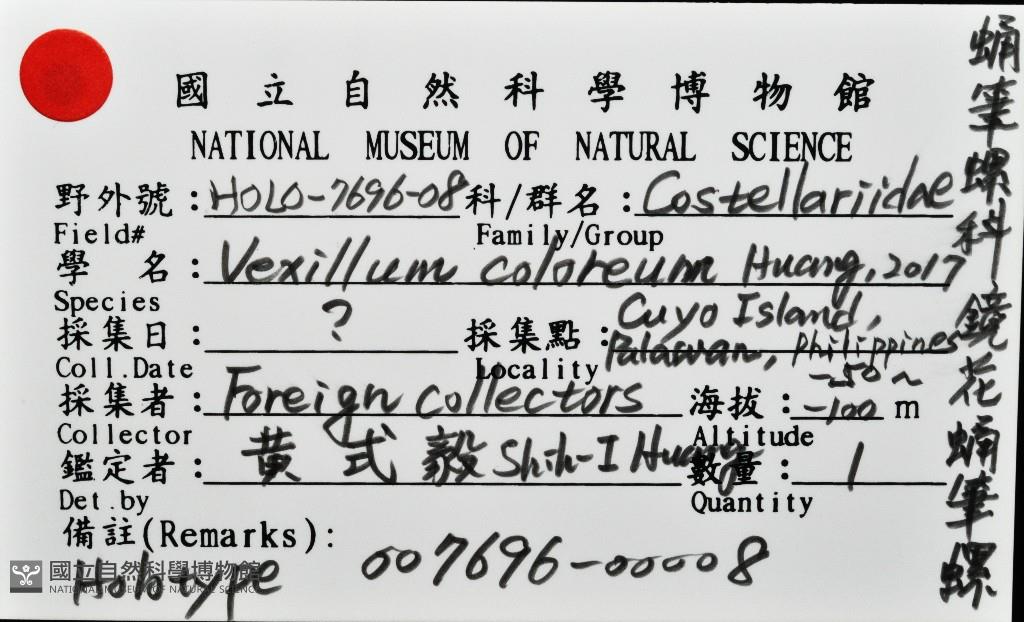 國立自然科學博物館
NATIONAL MUSEUM OF NATURAL SCIENCE
野外號:HOLO-7696-08 科/群名:Costellariidae
Field# Family/Group
學 名:Vexillum coloreum Huang, 2017
Species
採集日:? 採集點:Cuyo Island, Palawan, Philippines
Coll.Date Locality
採集者:Foreign collectors 海拔:-50~-100 m
Collector Altitude
鑑定者:黃式毅 Shih-I Huang 數量:1
Det.by Quantity
備註(Remarks):
Holotype 007696-00008
國立自然科學博物館
NATIONAL MUSEUM OF NATURAL SCIENCE
蛹筆螺科鏡花蛹筆螺